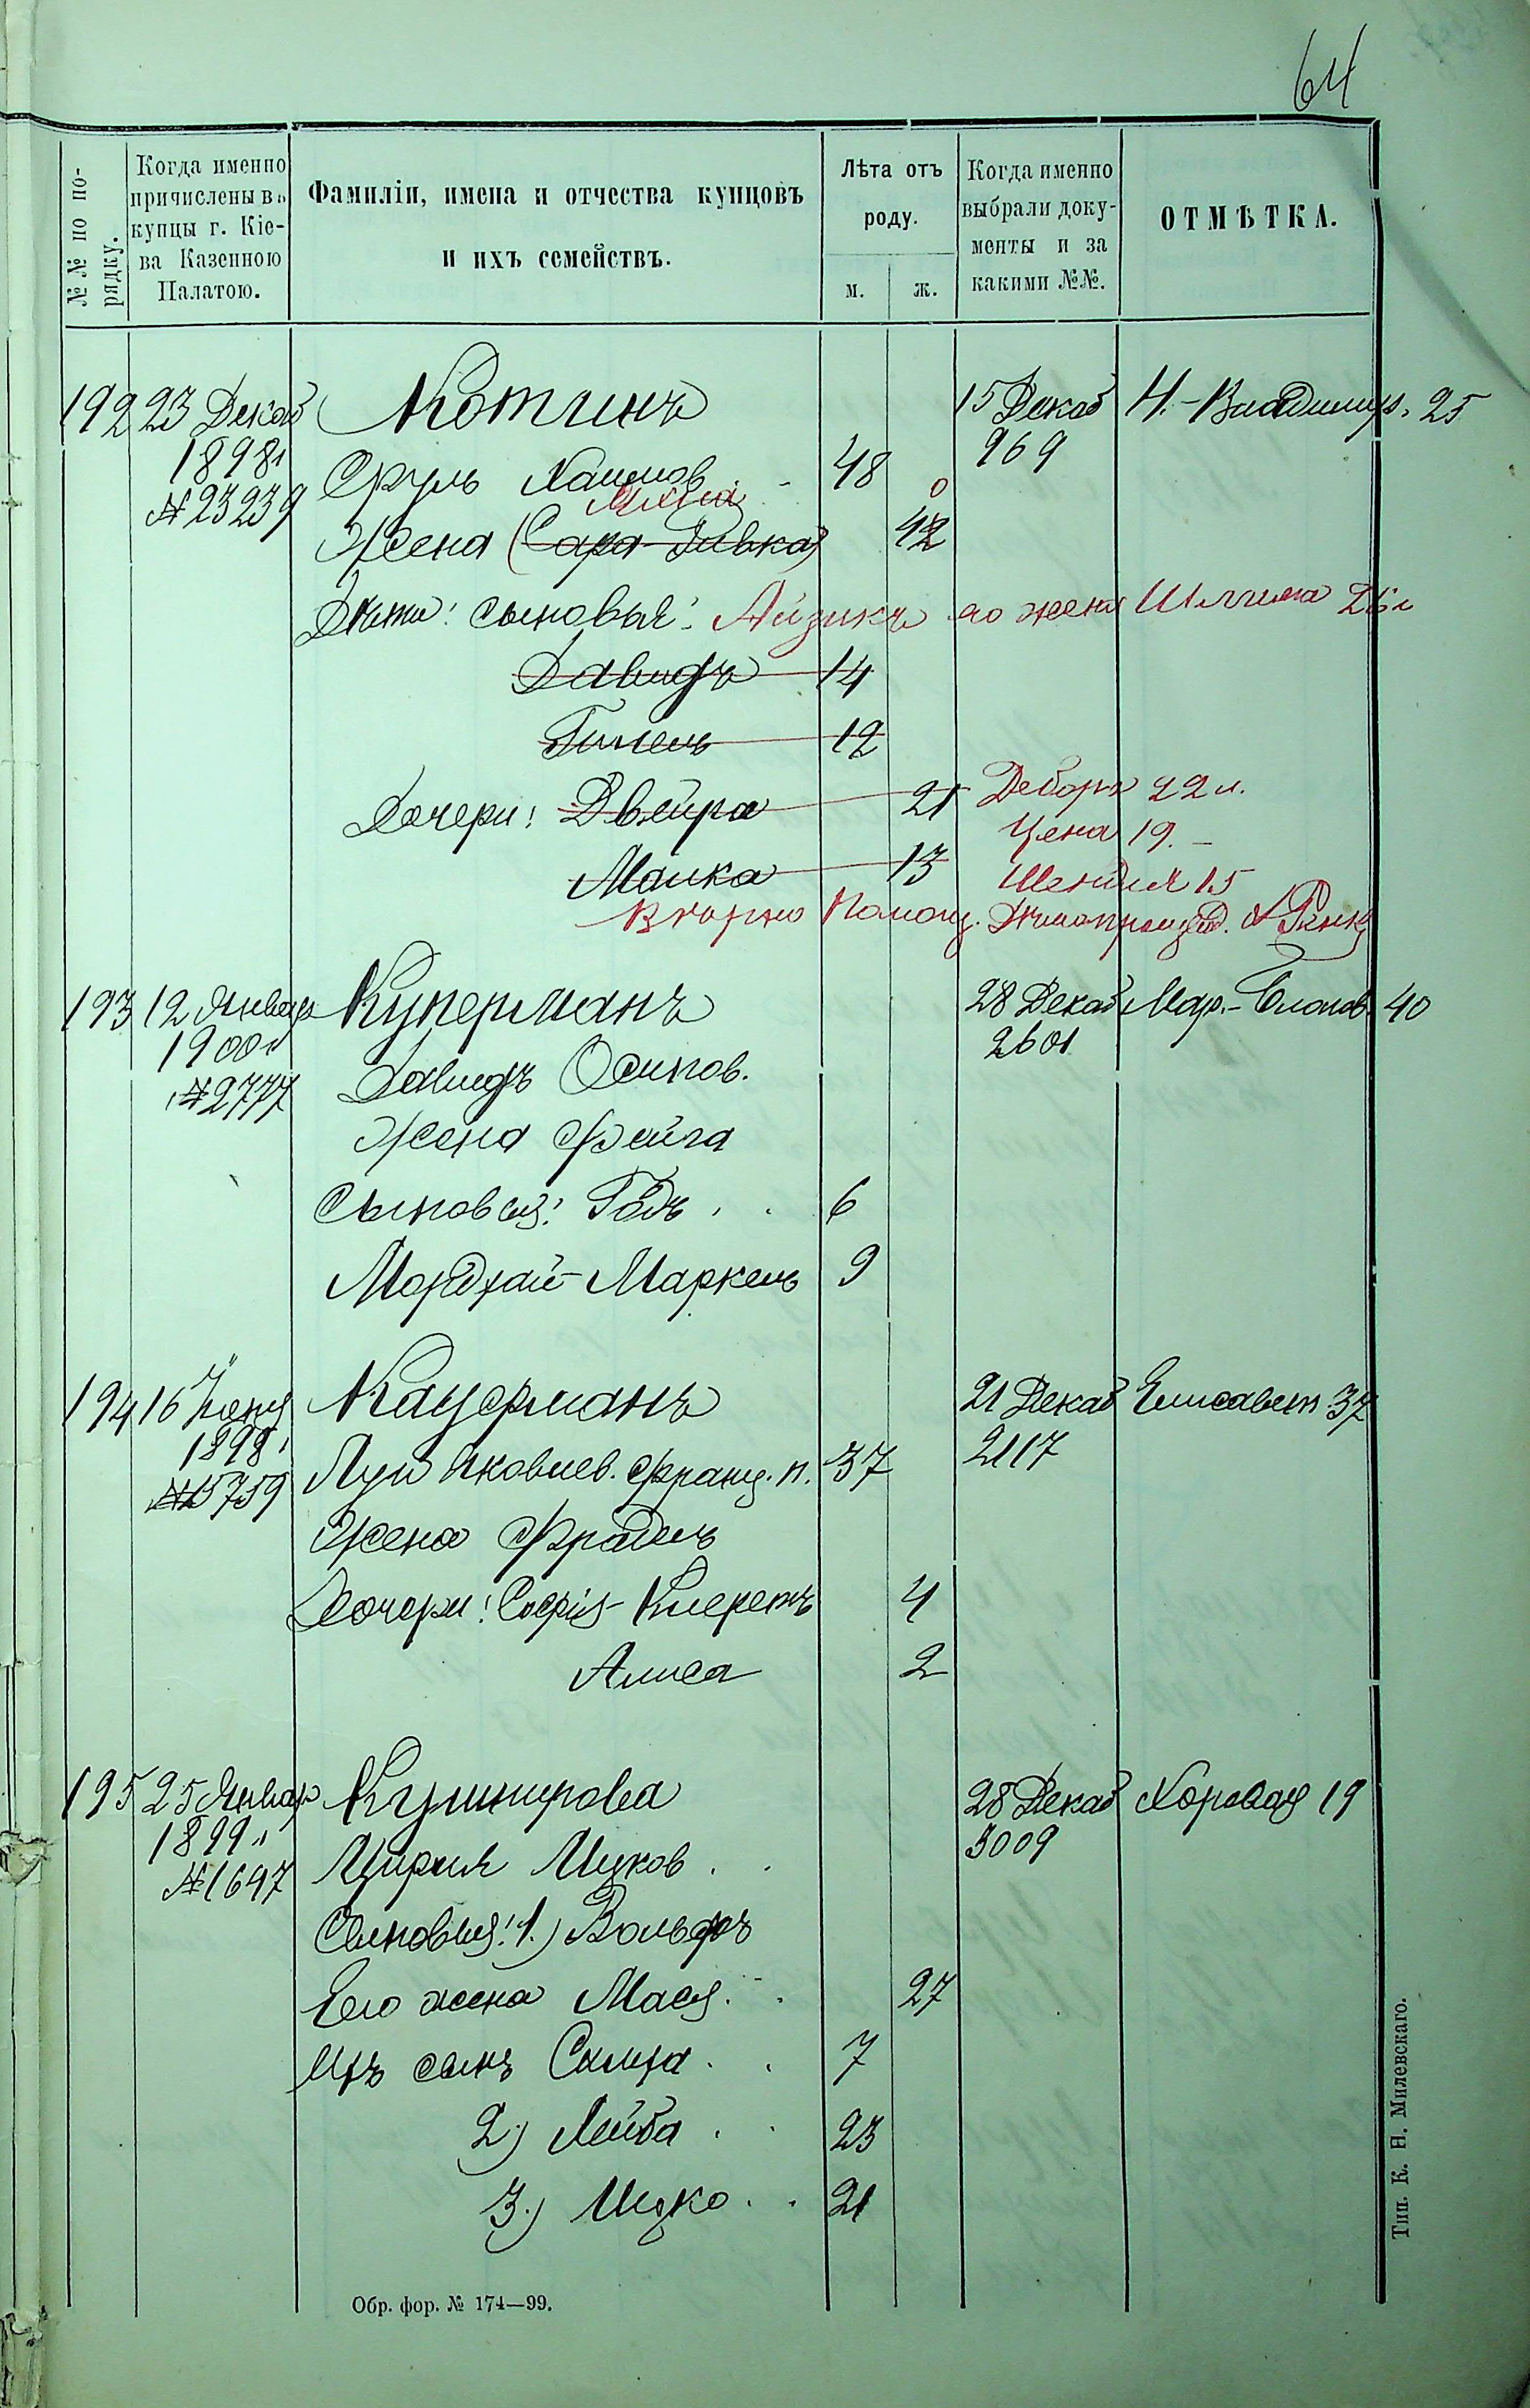 64
№№ по порядку.
Когда именно причислены въ купцы г. Кіева Казенною Палатою.
Фамиліи, имена и отчества купцовъ и ихъ семействъ.
Лѣта отъ роду.
м.
ж.
Когда именно выбрали документы и за какими №№.
ОТМѢТКА.
192 23 Декаб Котинъ 15 Декаб Н.-Владимір. 25
1898 969
№ 23239 Сруль Хаимов 48
Жена (Сара-Ривка) 42
Дѣти: сыновья: Айзикъ его жена 26 л
Давидъ 14
Гилель 12
Дочери: Двейра 21 Дебора 22 л.
Цена 19.
Малка 13 Шендля 15
193 12 Январ Куперманъ 28 Декаб Мар.-Благов. 40
1900 2601
№ 2777 Давидъ Осипов.
Жена Фейга
Сыновья: Гадъ 6
Мордхай-Маркель 9
194 16 Іюня Кацерманъ 21 Декаб Елисавет 37
1898 2117
№ 15759 Луи Яковлев. Франц. п. 37
Жена Фрадель
Дочери: Софія-Клеретъ 4
Алиса 2
195 25 Январ Кушнирова 28 Декаб Хоровая 19
1899 3009
№ 1647 Цирля Ицков
Сыновья: 1.) Вольфъ
Его жена Мася 27
Ихъ сынъ Симха 7
2.) Лейба 23
3.) Ицко 21
Обр. фор. № 174—99.
Тип. К. Н. Милевскаго.